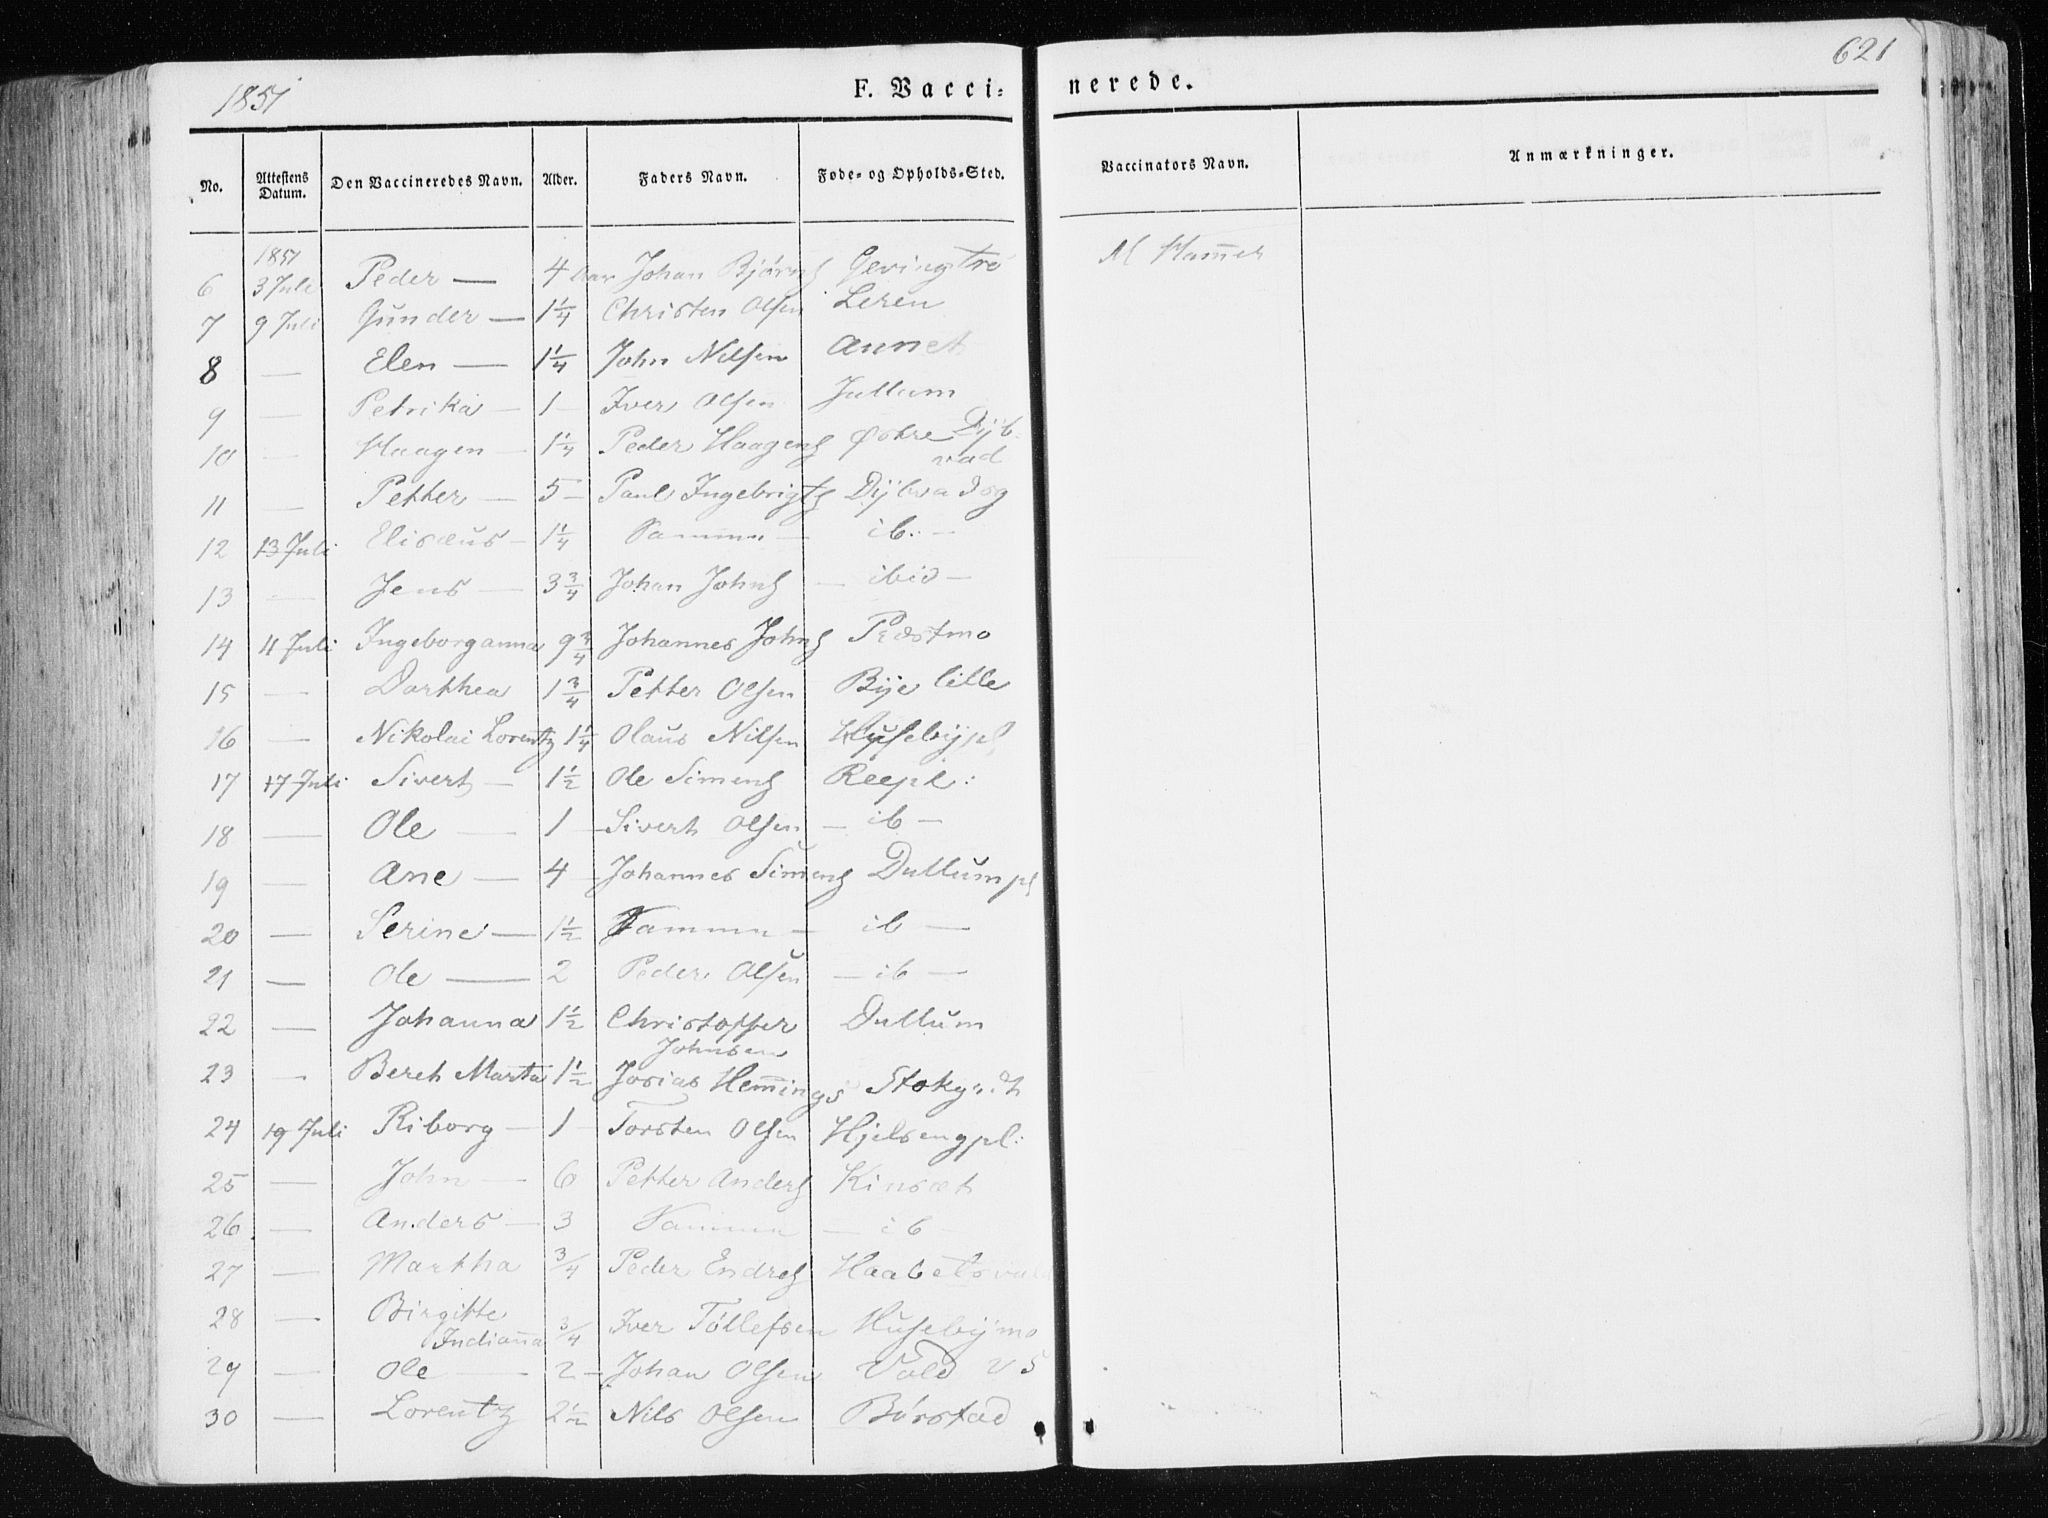 1851
F. Vacci=
nerede.
621
No.
Attestens Datum.
Den Vaccineredes Navn.
Alder.
Faders Navn.
Føde- og Opholds-Sted.
Vaccinators Navn.
Anmærkninger.
1851
6 3 Juli Peder — 4 Aar Johan Bjørns Gevingtrø M Hammer
7 9 Juli Gunder — 1 1/4 Christen Olsen Leren
8 — Elen — 1 1/4 John Nilsen Aunet
9 — Petrika — 1 — Iver Olsen Jullum
10 — Haagen — 1 1/4 Peder Haagens Østre Dyb-
vad
11 — Petter — 5 — Paul Ingebrigts Dybvadsg
12 13 Juli Elisæus — 1 1/4 Samme — ib. —
13 — Jens — 3 3/4 Johan Johns — ibid —
14 11 Juli Ingeborganna 9 3/4 Johannes Johns Præstmo
15 — Dorthea 1 3/4 Petter Olsen Bye lille
16 — Nikolai Lorentz 1 1/4 Olaus Nilsen Husebypl
17 17 Juli Sivert — 1 1/2 Ole Simens Reepl:
18 — Ole — 1 — Sivert Olsen — ib —
19 — Ane — 4 — Johannes Simens Dullumpl
20 — Serine — 1 1/2 Samme — ib —
21 — Ole — 2 Peder Olsen — ib —
22 — Johanna 1 1/2 Christopher Dullum
Johnsen
23 — Bereh Marta 1 1/2 Josias Hemmings
24 19 Juli Riborg — 1 — Torsten Olsen Hjelsengpl:
25 — John — 6 Petter Anders Kinsæt
26 — Anders — 3 Samme — ib —
27 — Martha 3/4 Peder Endres
28 — Birgitte
Indianna 3/4 Iver Tøllefsen Husebymo
29 — Ole — 2 — Johan Olsen Vold
30 — Lorentz 2 1/2 Nils Olsen Børstad